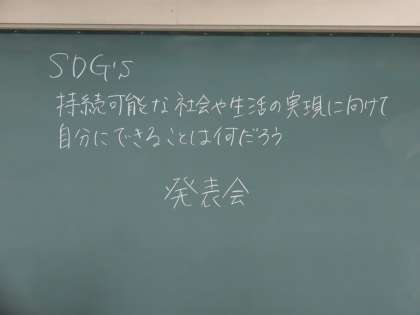 SDG's
持続可能な社会や生活の実現に向けて
自分にできることは何だろう
発表会